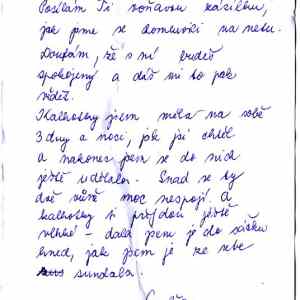 Posílám Ti voňavou zásilku,
jak jsme se domluvili na netu.
Doufám, že s ní budeš
spokojený a dáš mi to pak
vědět.
Kalhotky jsem měla na sobě
3 dny a noci, jak jsi chtěl
a nakonec jsem se do nich
ještě udělala. Snad se ty
dvě vůně moc nespojí. A
kalhotky ti přijdou ještě
vlhké – dala jsem je do sáčku
hned, jak jsem je ze sebe
sundala.